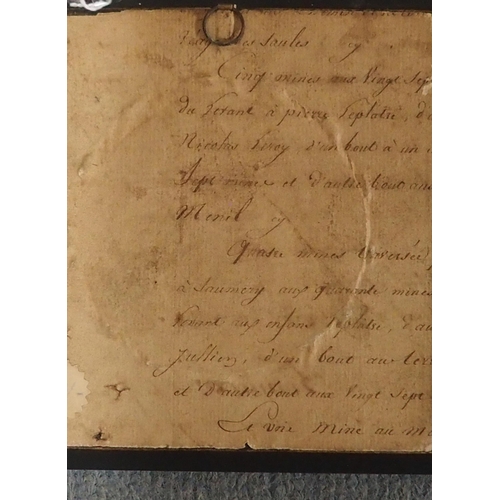 des Saules cy
Cinq mines aux Vingt Sept
du Tenant à pierre Leplatre, d'a
Nicolas Leroy d'un bout à un
Sept mines et d'autre bout aux
Menil cy
Quatre mines traversée
à Saumery aux quarante mines
Tenant aux enfans Leplatre, d'au
Jullien, d'un bout au terr
et d'autre bout aux Vingt Sept
Le Voie Mine au M